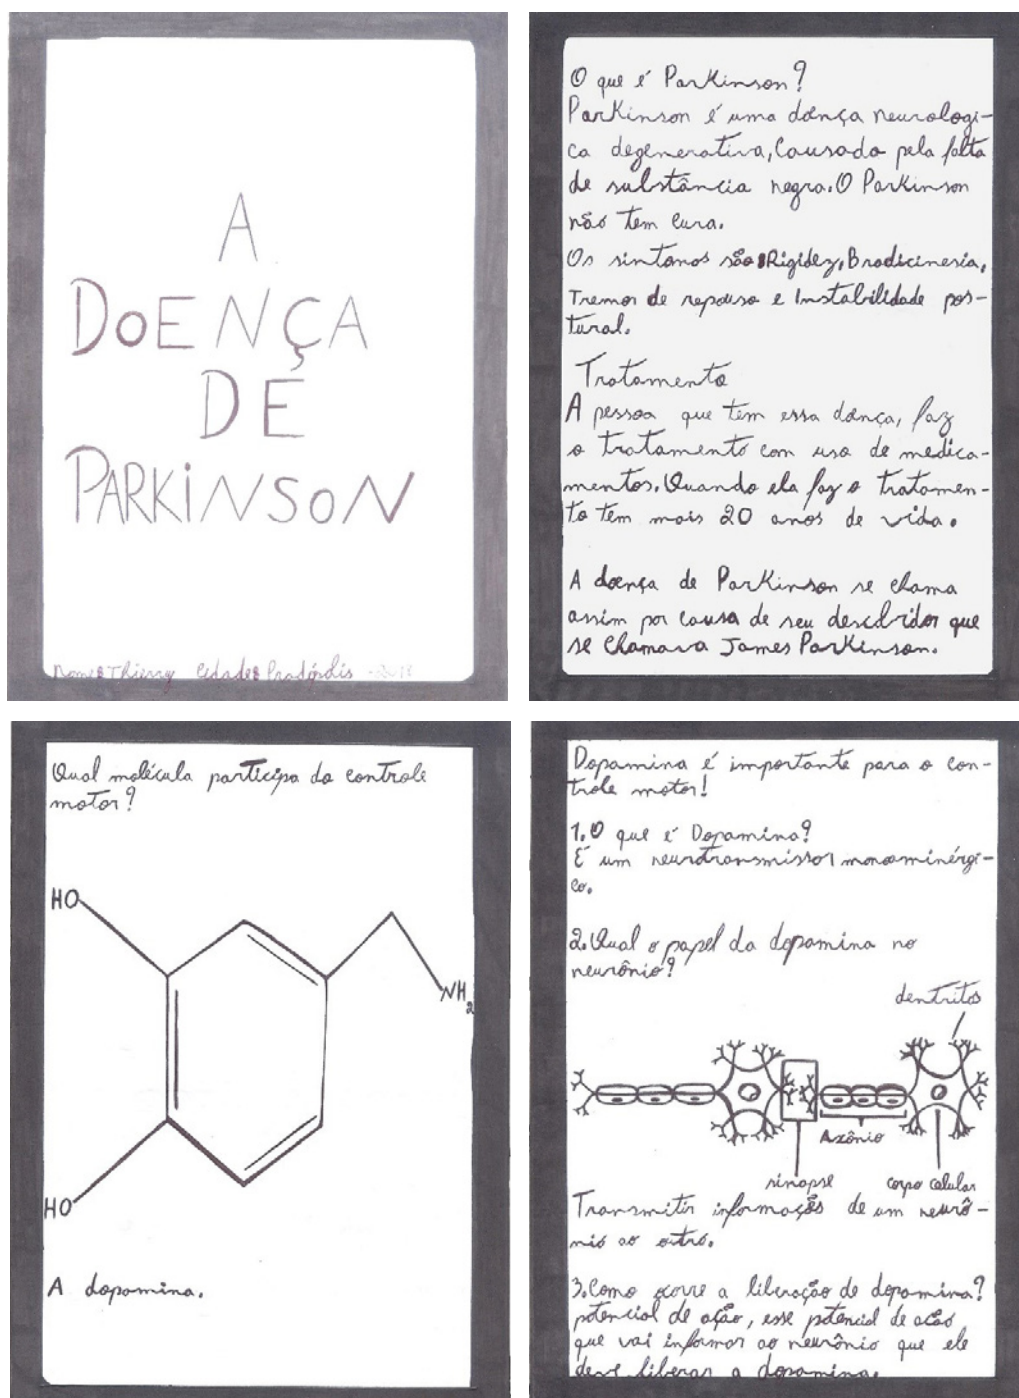 A
DOENÇA
DE
PARKINSON
Nome: Thierry Cidade: Pradópolis - 2018
O que é Parkinson?
Parkinson é uma doença neurologi-
ca degenerativa, Causada pela falta
de substância negra. O Parkinson
não tem cura.
Os sintomas são: Rigidez, Bradicinesia,
Tremor de repouso e Instabilidade pos-
tural.
Tratamento
A pessoa que tem essa doença, faz
o tratamento com uso de medica-
mentos. Quando ela faz o tratamen-
to tem mais 20 anos de vida.
A doença de Parkinson se chama
assim por causa de seu descobridor que
se chamava James Parkinson.
Qual molécula participa do controle
motor?
HO
NH2
HO
A dopamina.
Dopamina é importante para o con-
trole motor!
1. O que é Dopamina?
É um neurotransmissor monoaminérgi-
co.
2. Qual o papel da dopamina no
neurônio?
dentritos
Axônio
sinapse corpo celular
Transmitir informações de um neurô-
nio ao outro.
3. Como ocorre a liberação de dopamina?
potencial de ação, esse potencial de acão
que vai informar ao neurônio que ele
deve liberar a dopamina.